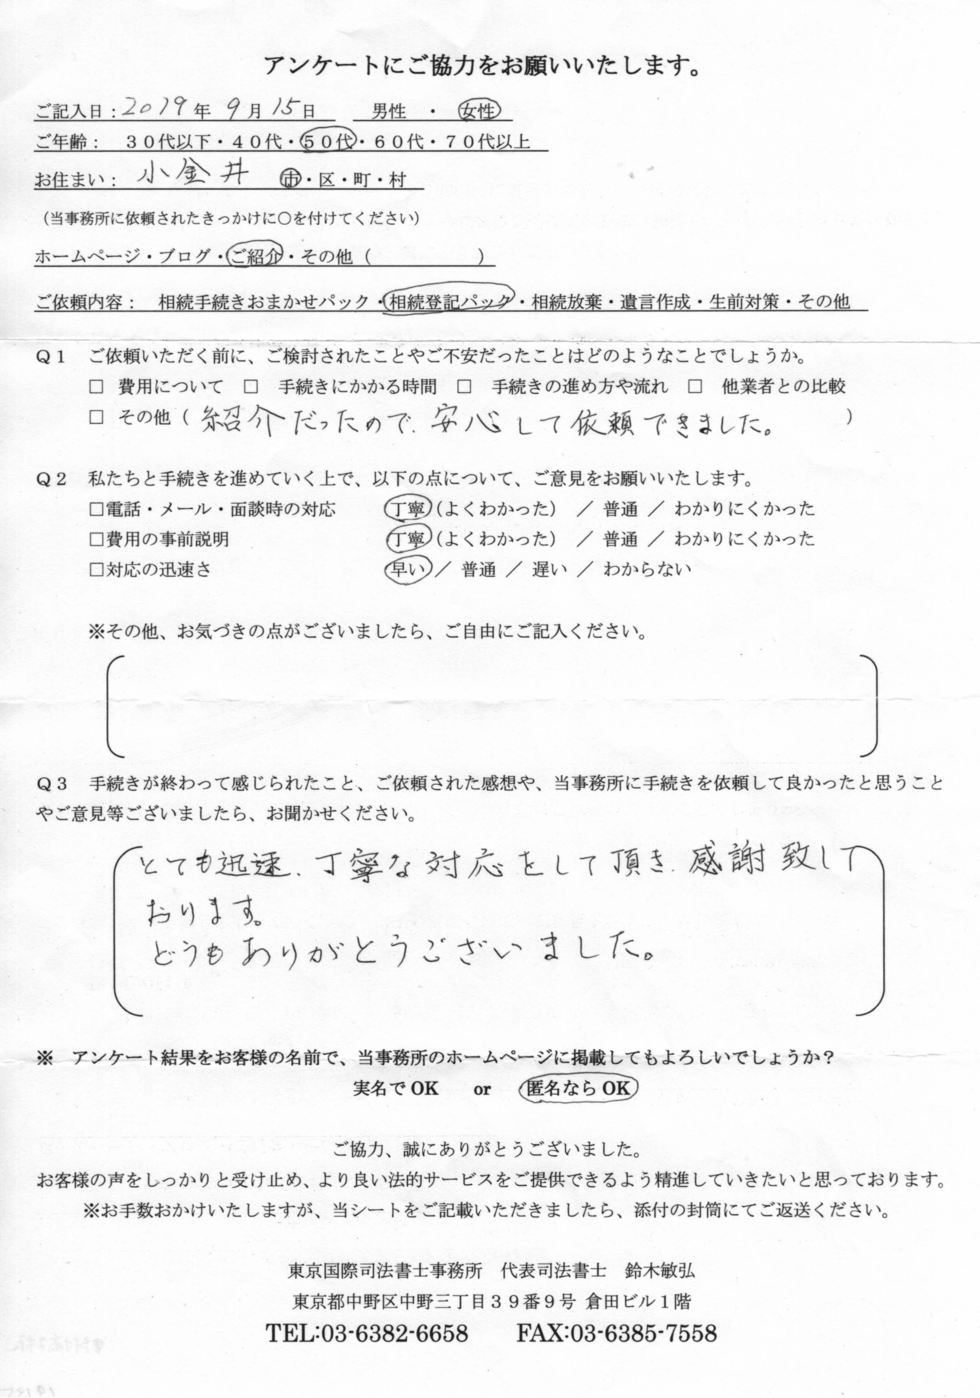 アンケートにご協力をお願いいたします。
ご記入日：2019年 9月 15日　男性　・　女性
ご年齢：　３０代以下・４０代・５０代・６０代・７０代以上
お住まい：　小金井　市・区・町・村
（当事務所に依頼されたきっかけに○を付けてください）
ホームページ・ブログ・ご紹介・その他（　　　　　　）
ご依頼内容：　相続手続きおまかせパック・相続登記パック・相続放棄・遺言作成・生前対策・その他
Ｑ１　ご依頼いただく前に、ご検討されたことやご不安だったことはどのようなことでしょうか。
□　費用について　□　手続きにかかる時間　□　手続きの進め方や流れ　□　他業者との比較
□　その他（紹介だったので、安心して依頼できました。）
Ｑ２　私たちと手続きを進めていく上で、以下の点について、ご意見をお願いいたします。
□電話・メール・面談時の対応　丁寧（よくわかった）　／　普通　／　わかりにくかった
□費用の事前説明　丁寧（よくわかった）　／　普通　／　わかりにくかった
□対応の迅速さ　早い／　普通　／　遅い　／　わからない
※その他、お気づきの点がございましたら、ご自由にご記入ください。
Ｑ３　手続きが終わって感じられたこと、ご依頼された感想や、当事務所に手続きを依頼して良かったと思うこと
やご意見等ございましたら、お聞かせください。
とても迅速、丁寧な対応をして頂き、感謝致して
おります。
どうもありがとうございました。
※　アンケート結果をお客様の名前で、当事務所のホームページに掲載してもよろしいでしょうか？
実名でOK　　or　　匿名ならOK
ご協力、誠にありがとうございました。
お客様の声をしっかりと受け止め、より良い法的サービスをご提供できるよう精進していきたいと思っております。
※お手数おかけいたしますが、当シートをご記載いただきましたら、添付の封筒にてご返送ください。
東京国際司法書士事務所　代表司法書士　鈴木敏弘
東京都中野区中野三丁目３９番９号 倉田ビル１階
TEL:03-6382-6658　　FAX:03-6385-7558